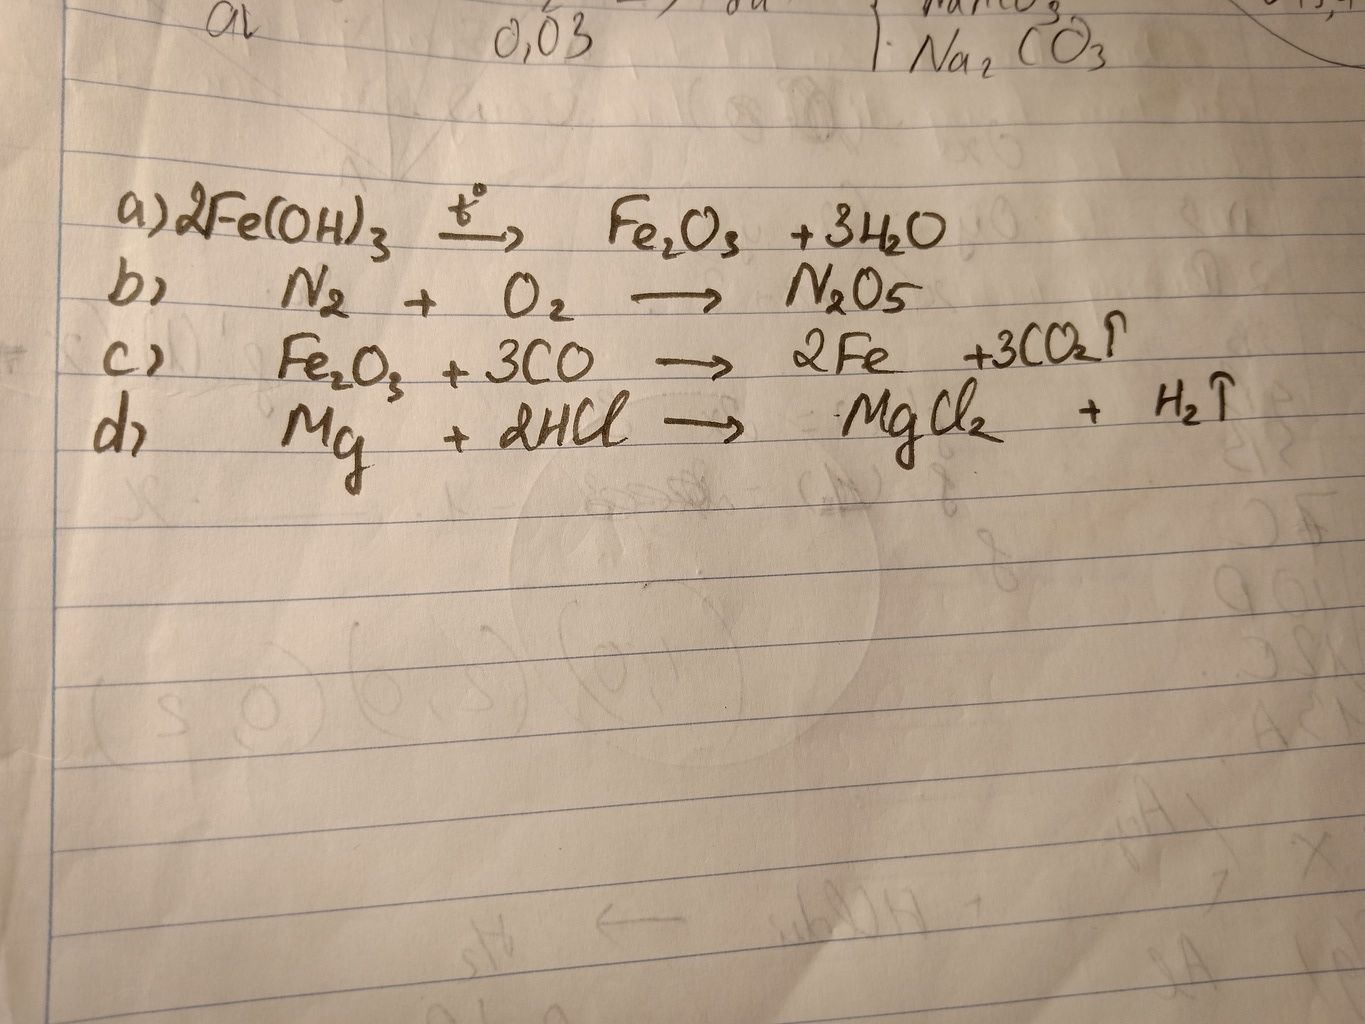 0,03
Na₂CO₃
a) 2Fe(OH)₃ —t°→ Fe₂O₃ + 3H₂O
b) N₂ + O₂ → N₂O₅
c) Fe₂O₃ + 3CO → 2Fe + 3CO₂↑
d) Mg + 2HCl → MgCl₂ + H₂↑